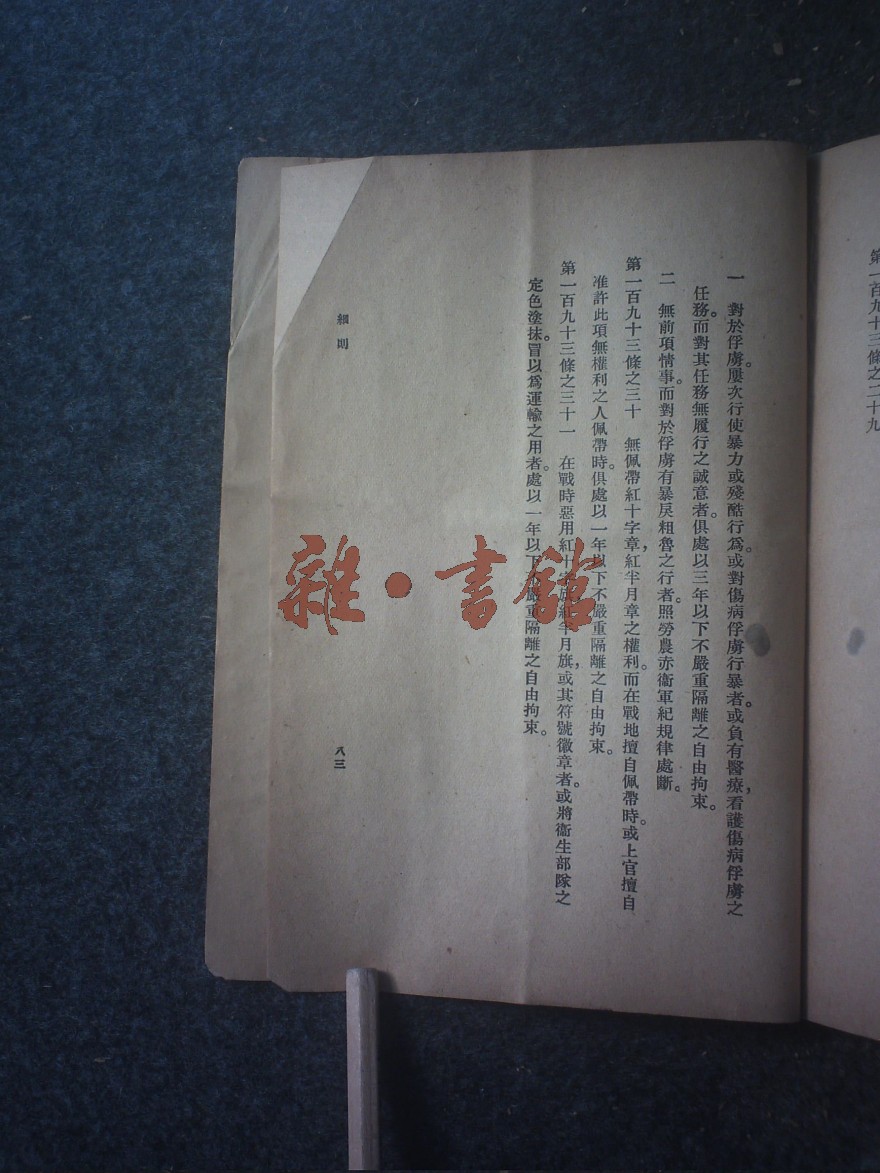 第一百九十三條之二十九
一　對於俘虜。屢次行使暴力或殘酷行爲。或對傷病俘虜行暴者。或負有醫療，看護傷病俘虜之
任務。而對其任務無履行之誠意者。俱處以三年以下不嚴重隔離之自由拘束。
二　無前項情事。而對於俘虜有暴戾粗魯之行者。照勞農赤衞軍紀規律處斷。
第一百九十三條之三十　無佩帶紅十字章，紅半月章之權利。而在戰地擅自佩帶時。或上官擅自
准許此項無權利之人佩帶時。俱處以一年以下不嚴重隔離之自由拘束。
第一百九十三條之三十一　在戰時惡用紅十字旗，紅半月旗，或其符號徽章者。或將衞生部隊之
定色塗抹。冒以爲運輸之用者。處以一年以下不嚴重隔離之自由拘束。
細則
八三
雜·書館